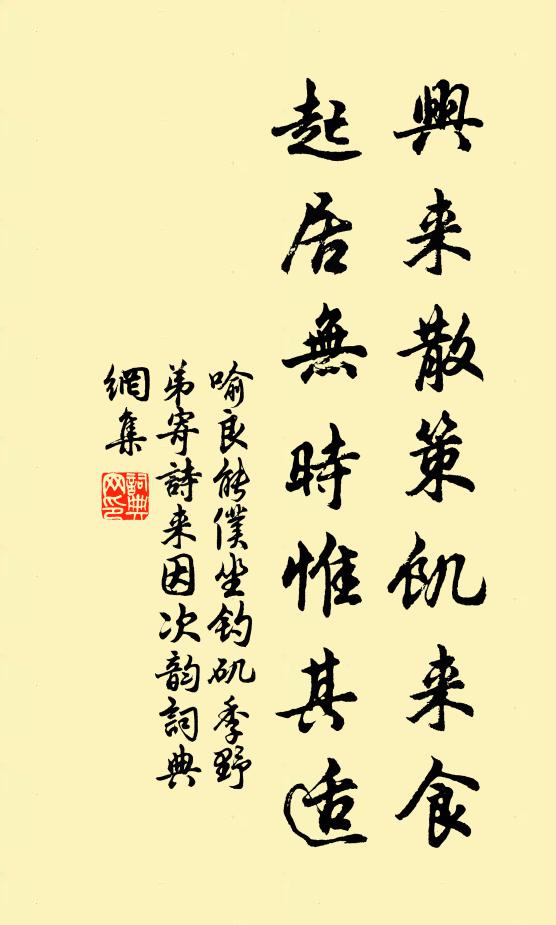 興来散策飢来食
起居無時惟其适
喻良能僕坐釣矶季野
弟寄詩来因次韵詞典
網集
詞典
网印